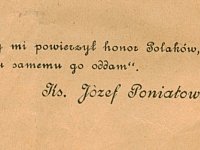 mi powierzył honor Polaków,
samemu go oddam".
Ks. Józef Poniatow